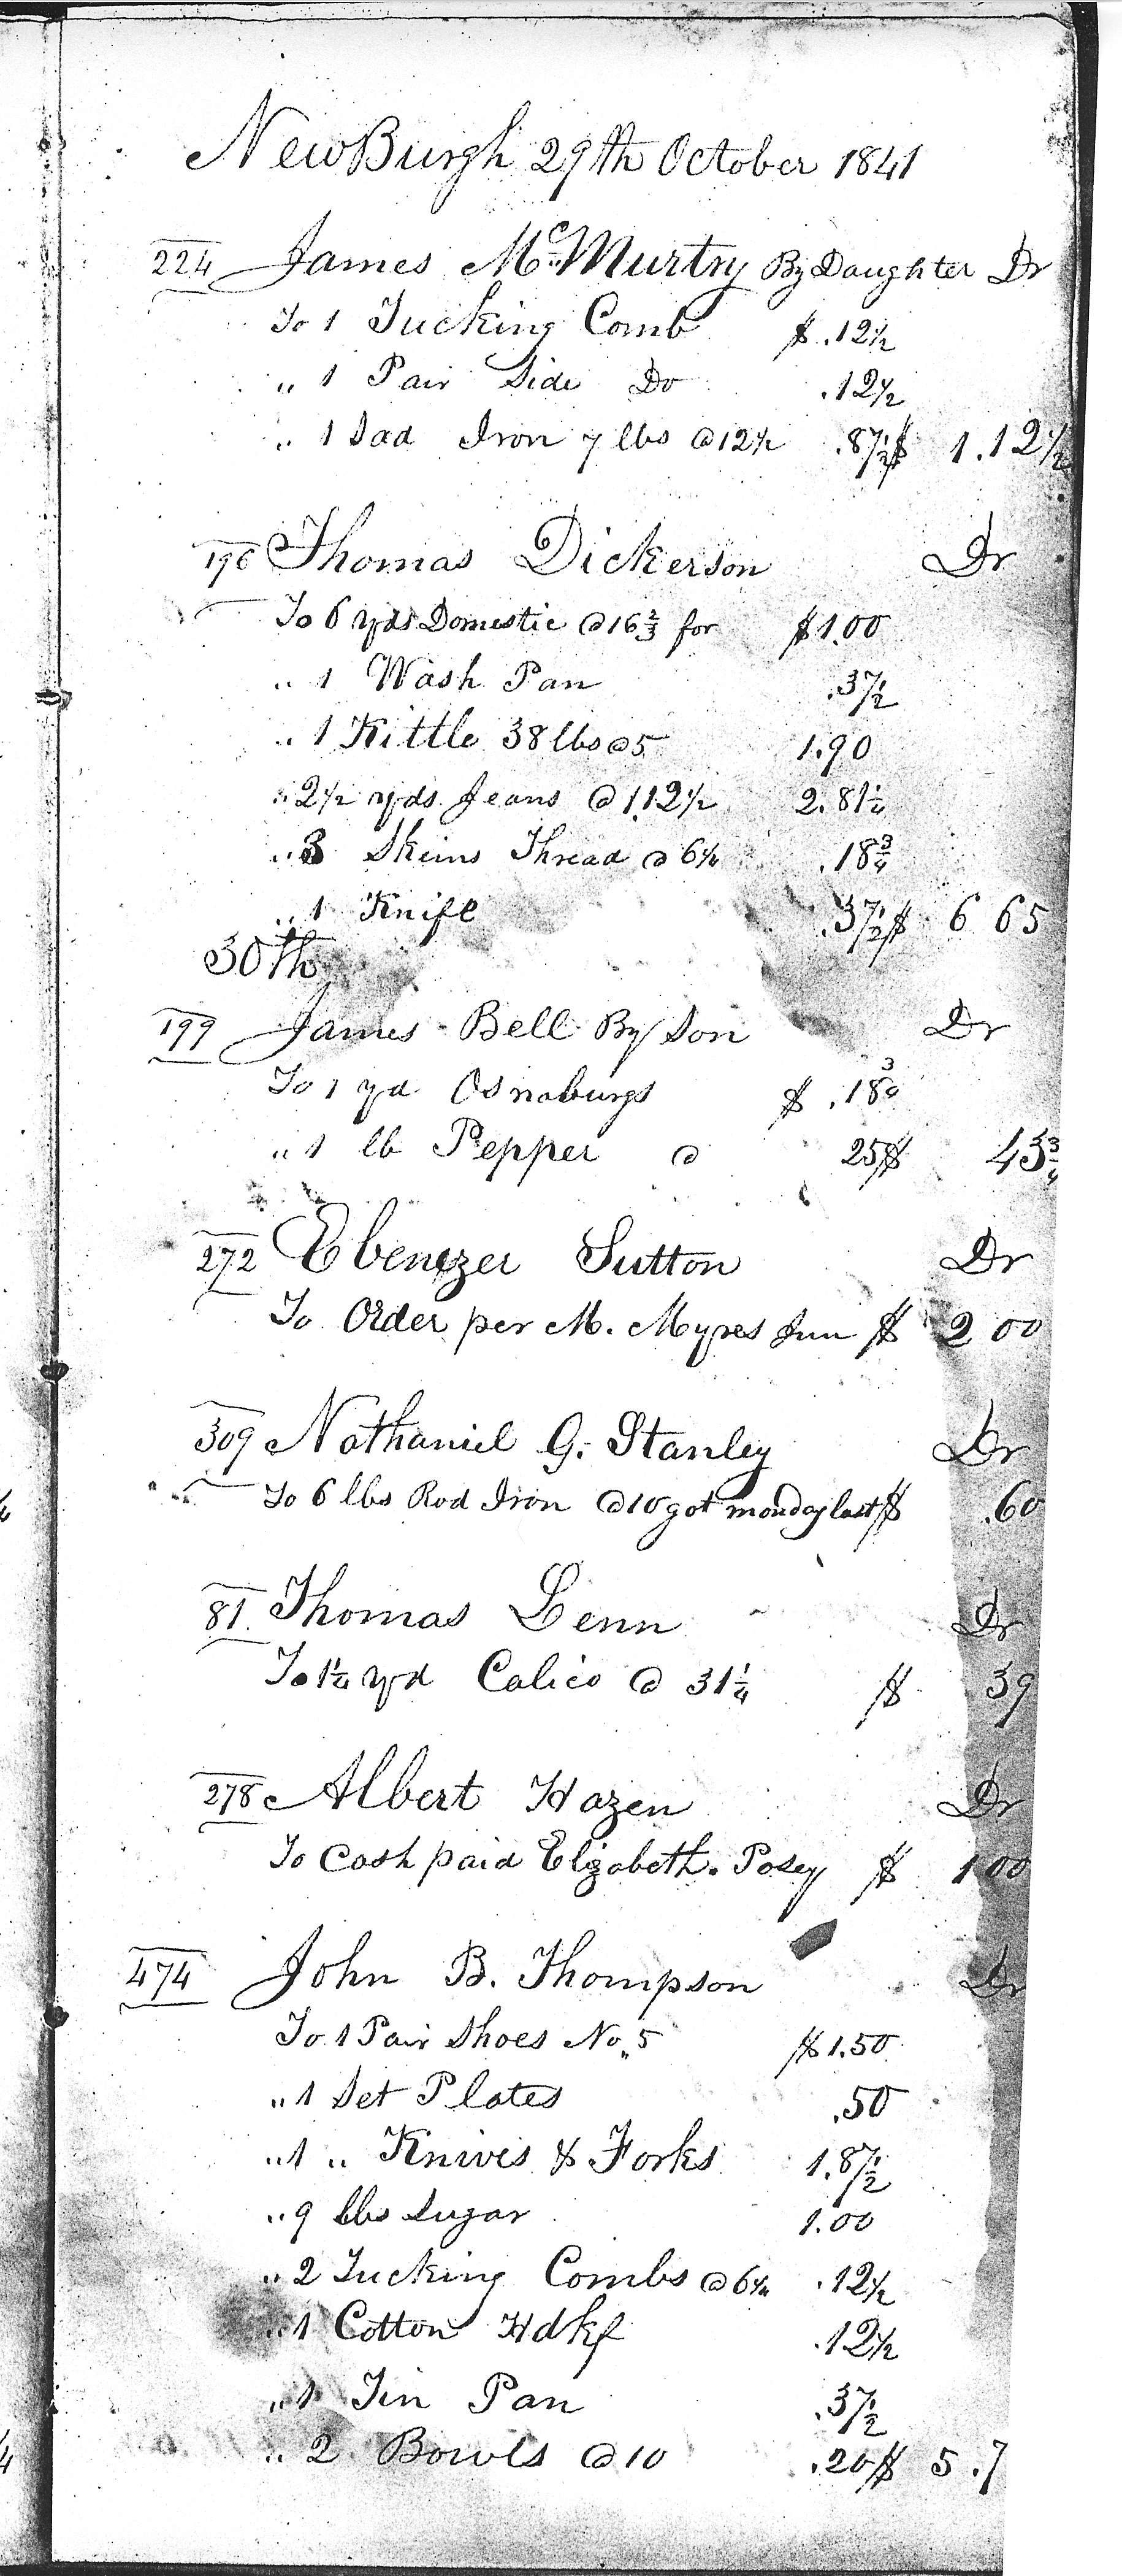 NewBurgh 29th October 1841
224 James McMurtry By Daughter Dr
To 1 Tucking Comb $ .12½
" 1 Pair Side Do .12½
" 1 Sad Iron 7 lbs @ 12½ .87½ $ 1.12½
196 Thomas Dickerson Dr
To 6 yds Domestic @ 16⅔ for $1.00
" 1 Wash Pan .37½
" 1 Kittle 38 lbs @ 5 1.90
" 2½ yds Jeans @ 1.12½ 2.81¼
" 3 Skeins Thread @ 6¼ .18¾
" 1 Knife .37½ $ 6 65
30th
199 James Bell By Son Dr
To 1 yd Osnaburgs $ .18¾
" 1 lb Pepper @ 25 $ 43¾
272 Ebenezer Sutton Dr
To Order per M. Myres Jun $ 2 00
309 Nathaniel G. Stanley Dr
To 6 lbs Rod Iron @ 10 got monday last $ .60
81 Thomas Lenn Dr
To 1¼ yd Calico @ 31¼ $ 39
278 Albert Hazen Dr
To Cash paid Elizabeth. Posey $ 1 00
474 John B. Thompson Dr
To 1 Pair Shoes No. 5 $1.50
" 1 Set Plates .50
" 1 " Knives & Forks 1.87½
" 9 lbs Sugar 1.00
" 2 Tucking Combs @ 6¼ .12½
" 1 Cotton Hdkf .12½
" 1 Tin Pan .37½
" 2 Bowls @ 10 .20 $ 5.7